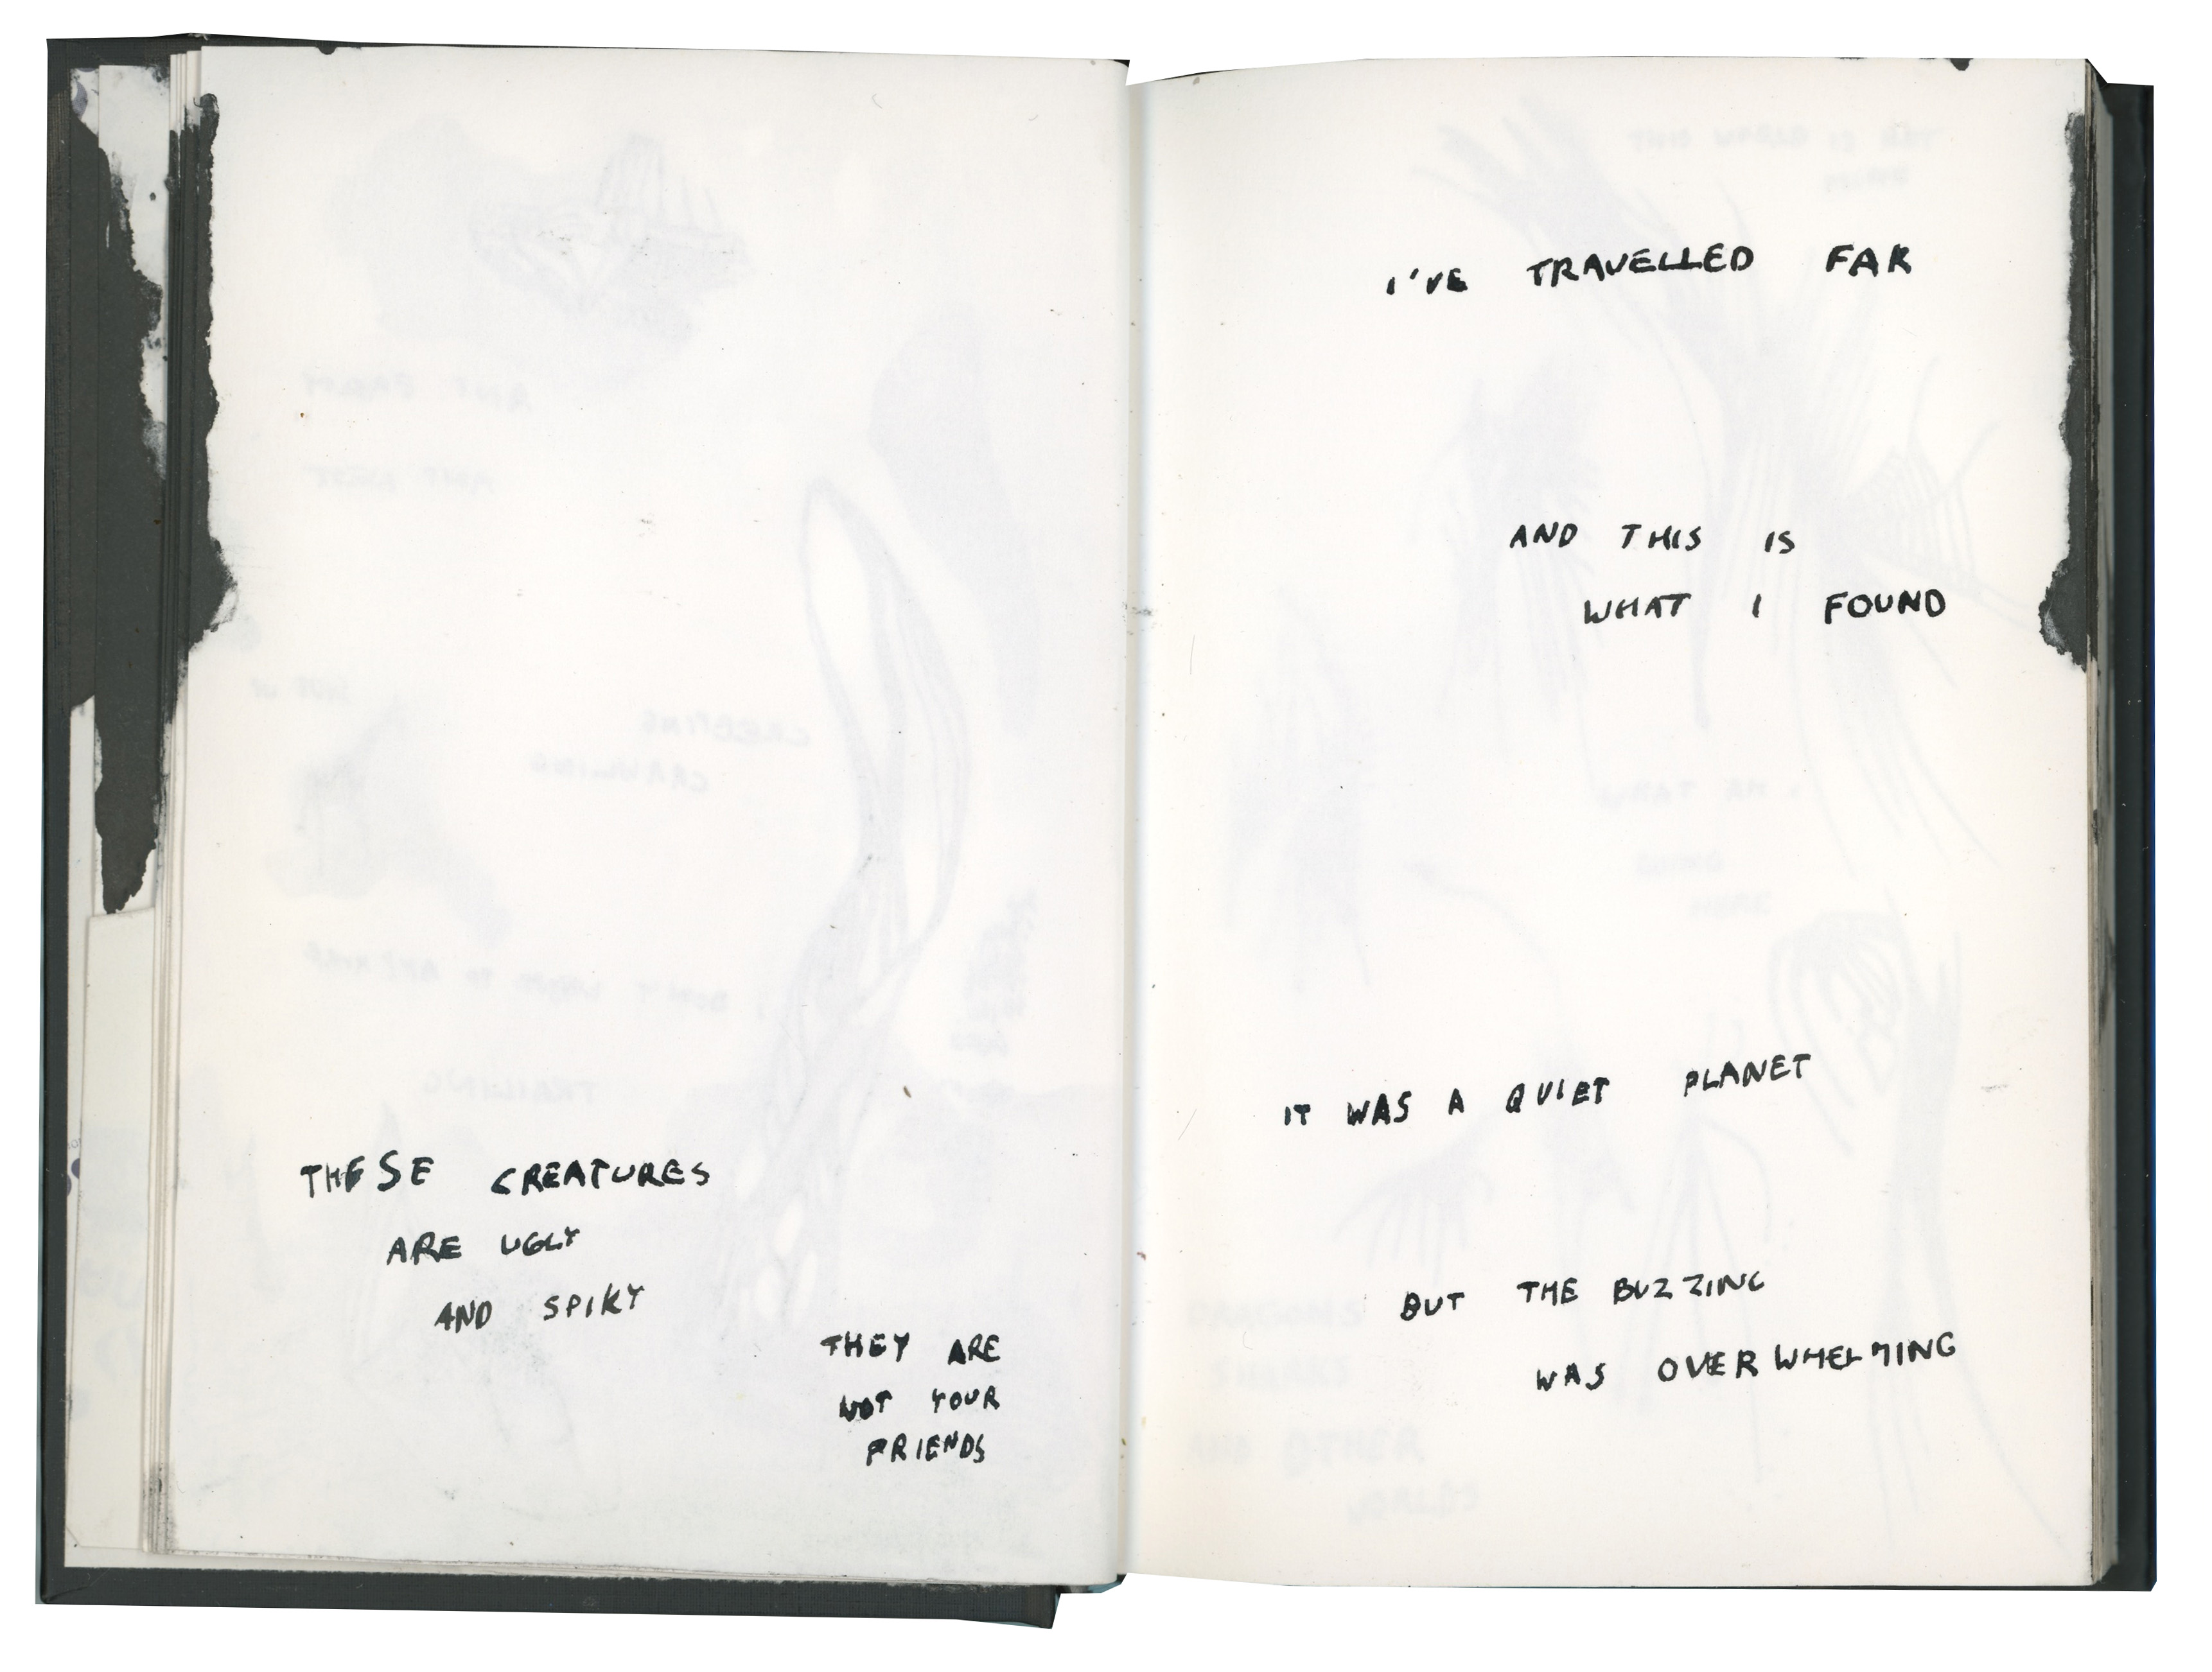 THESE CREATURES
ARE UGLY
AND SPIKY
THEY ARE
NOT YOUR
FRIENDS
I'VE TRAVELLED FAR
AND THIS IS
WHAT I FOUND
IT WAS A QUIET PLANET
BUT THE BUZZING
WAS OVERWHELMING